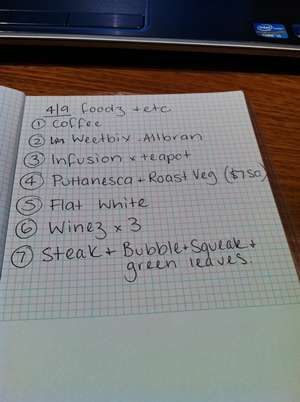 4/9 foodz + etc
① Coffee
② Weetbix . Allbran
③ Infusion x teapot
④ Puttanesca + Roast Veg ($7.50)
⑤ Flat White
⑥ Winez x 3
⑦ Steak + Bubble + Squeak +
green leaves.
intel